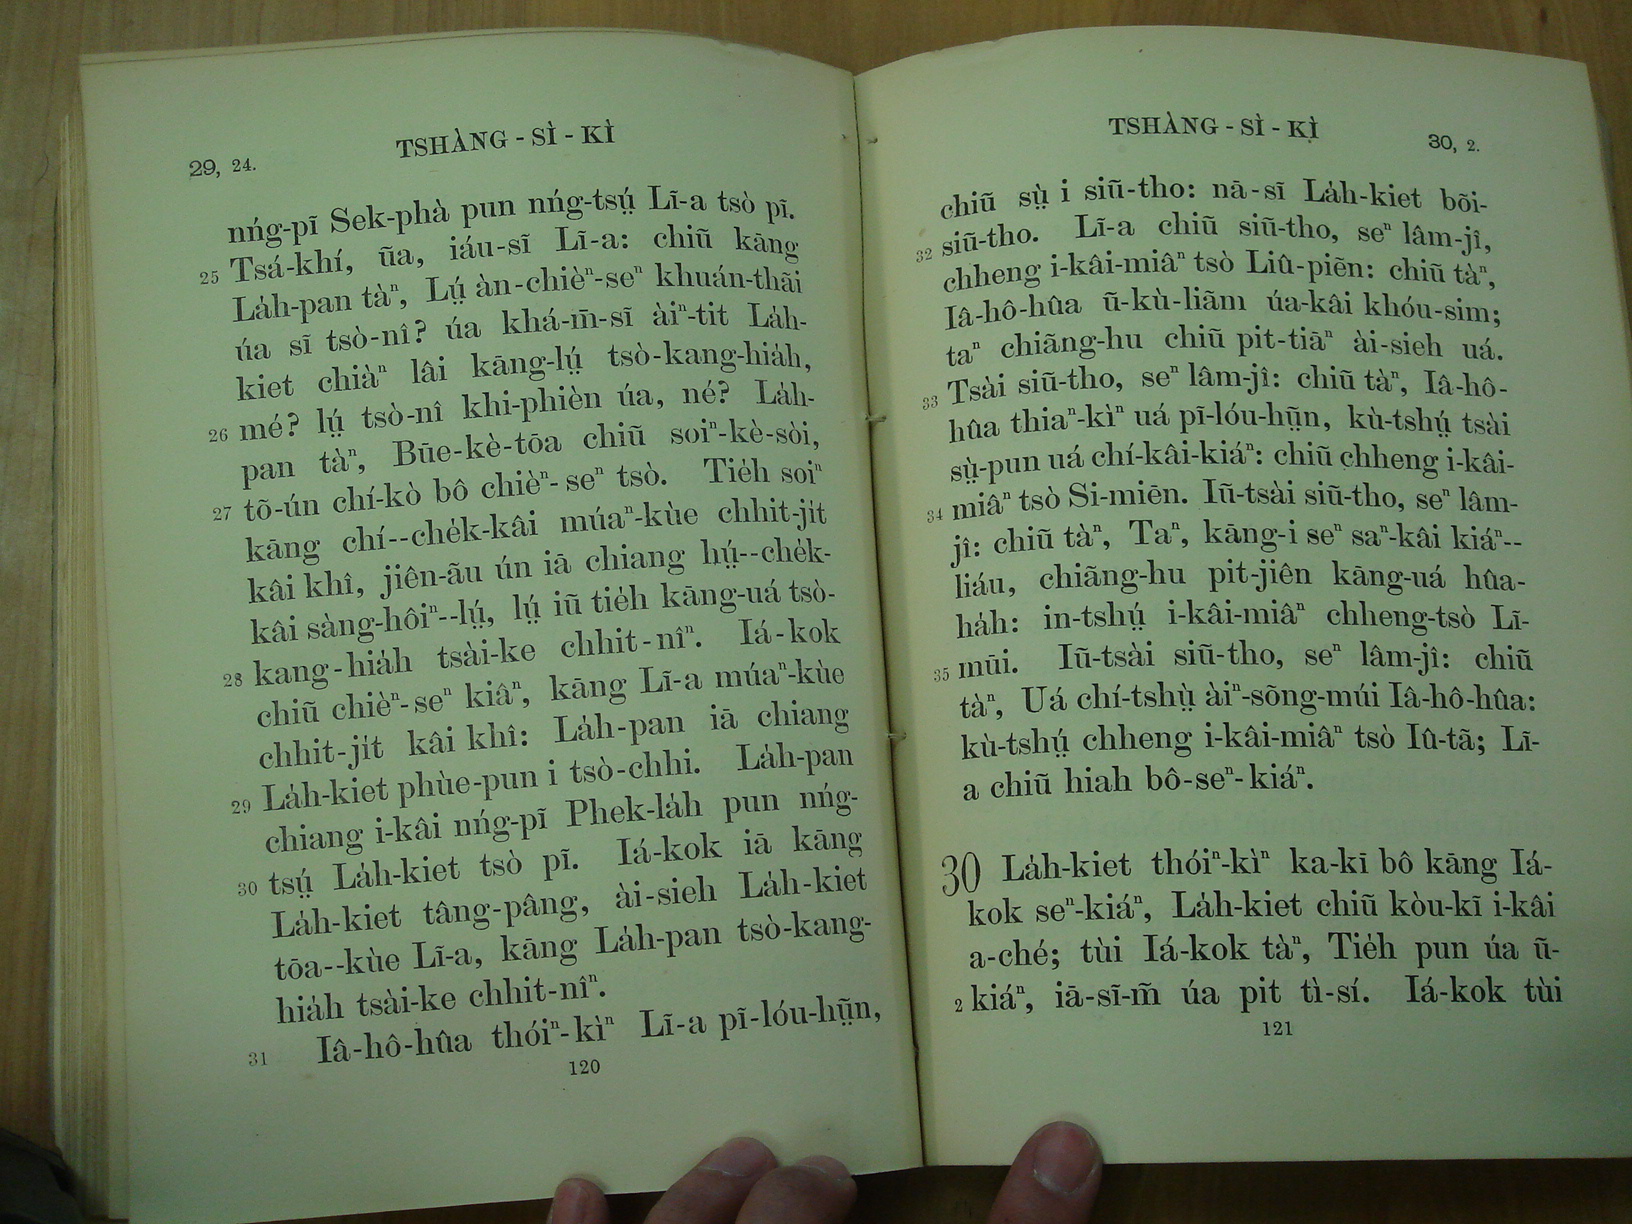 29, 24.
TSHÀNG - SÌ - KÌ
nńg-pī Sek-phà pun nńg-tsṳ́ Lī-a tsò pī.
25 Tsá-khí, ũa, iáu-sī Lī-a: chiũ kāng
La̍h-pan tàⁿ, Lṳ́ àn-chièⁿ-seⁿ khuán-thãi
úa sī tsò-nî? úa khá-m̄-sī àiⁿ-tit La̍h-
kiet chiàⁿ lâi kāng-lṳ́ tsò-kang-hia̍h,
26 mé? lṳ́ tsò-nî khi-phièn úa, né? La̍h-
pan tàⁿ, Būe-kè-tōa chiũ soiⁿ-kè-sòi,
27 tõ-ún chí-kò bô chièⁿ-seⁿ tsò. Tie̍h soiⁿ
kāng chí--che̍k-kâi múaⁿ-kùe chhit-ji̍t
kâi khî, jiên-ãu ún iā chiang hṳ́--che̍k-
kâi sàng-hôiⁿ--lṳ́, lṳ́ iũ tie̍h kāng-uá tsò-
28 kang-hia̍h tsài-ke chhit-nîⁿ. Iá-kok
chiũ chièⁿ-seⁿ kiâⁿ, kāng Lī-a múaⁿ-kùe
chhit-ji̍t kâi khî: La̍h-pan iā chiang
29 La̍h-kiet phùe-pun i tsò-chhi. La̍h-pan
chiang i-kâi nńg-pī Phek-la̍h pun nńg-
30 tsṳ́ La̍h-kiet tsò pī. Iá-kok iā kāng
La̍h-kiet tâng-pâng, ài-sieh La̍h-kiet
tōa--kùe Lī-a, kāng La̍h-pan tsò-kang-
hia̍h tsài-ke chhit-nîⁿ.
31 Iâ-hô-hûa thóiⁿ-kìⁿ Lī-a pī-lóu-hṳ̃n,
120
TSHÀNG - SÌ - KÌ
30, 2.
chiũ sṳ̀ i siũ-tho: nā-sī La̍h-kiet bõi-
32 siũ-tho. Lī-a chiũ siũ-tho, seⁿ lâm-jî,
chheng i-kâi-miâⁿ tsò Liû-piēn: chiũ tàⁿ,
Iâ-hô-hûa ũ-kù-liãm úa-kâi khóu-sim;
taⁿ chiãng-hu chiũ pit-tiāⁿ ài-sieh uá.
33 Tsài siũ-tho, seⁿ lâm-jî: chiũ tàⁿ, Iâ-hô-
hûa thiaⁿ-kìⁿ uá pī-lóu-hṳ̃n, kù-tshṳ́ tsài
sṳ̀-pun uá chí-kâi-kiáⁿ: chiũ chheng i-kâi-
34 miâⁿ tsò Si-miēn. Iũ-tsài siũ-tho, seⁿ lâm-
jî: chiũ tàⁿ, Taⁿ, kāng-i seⁿ saⁿ-kâi kiáⁿ--
liáu, chiãng-hu pit-jiên kāng-uá hûa-
ha̍h: in-tshṳ́ i-kâi-miâⁿ chheng-tsò Lī-
35 mūi. Iũ-tsài siũ-tho, seⁿ lâm-jî: chiũ
tàⁿ, Uá chí-tshṳ̀ àiⁿ-sõng-múi Iâ-hô-hûa:
kù-tshṳ́ chheng i-kâi-miâⁿ tsò Iû-tã; Lī-
a chiũ hiah bô-seⁿ-kiáⁿ.
30 La̍h-kiet thóiⁿ-kìⁿ ka-kī bô kāng Iá-
kok seⁿ-kiáⁿ, La̍h-kiet chiũ kòu-kī i-kâi
a-ché; tùi Iá-kok tàⁿ, Tie̍h pun úa ũ-
2 kiáⁿ, iā-sī-m̄ úa pit tì-sí. Iá-kok tùi
121